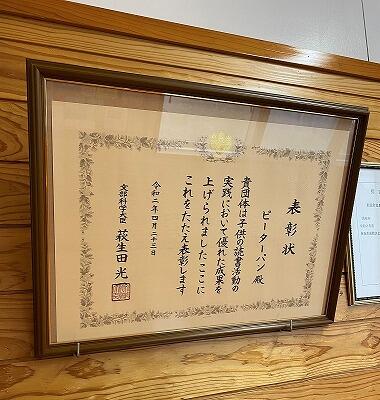 表彰状
ピーターパン 殿
貴団体は子供の読書活動の
実践において優れた成果を
上げられましたここに
これをたたえ表彰します
令和二年四月二十三日
文部科学大臣 萩生田光一